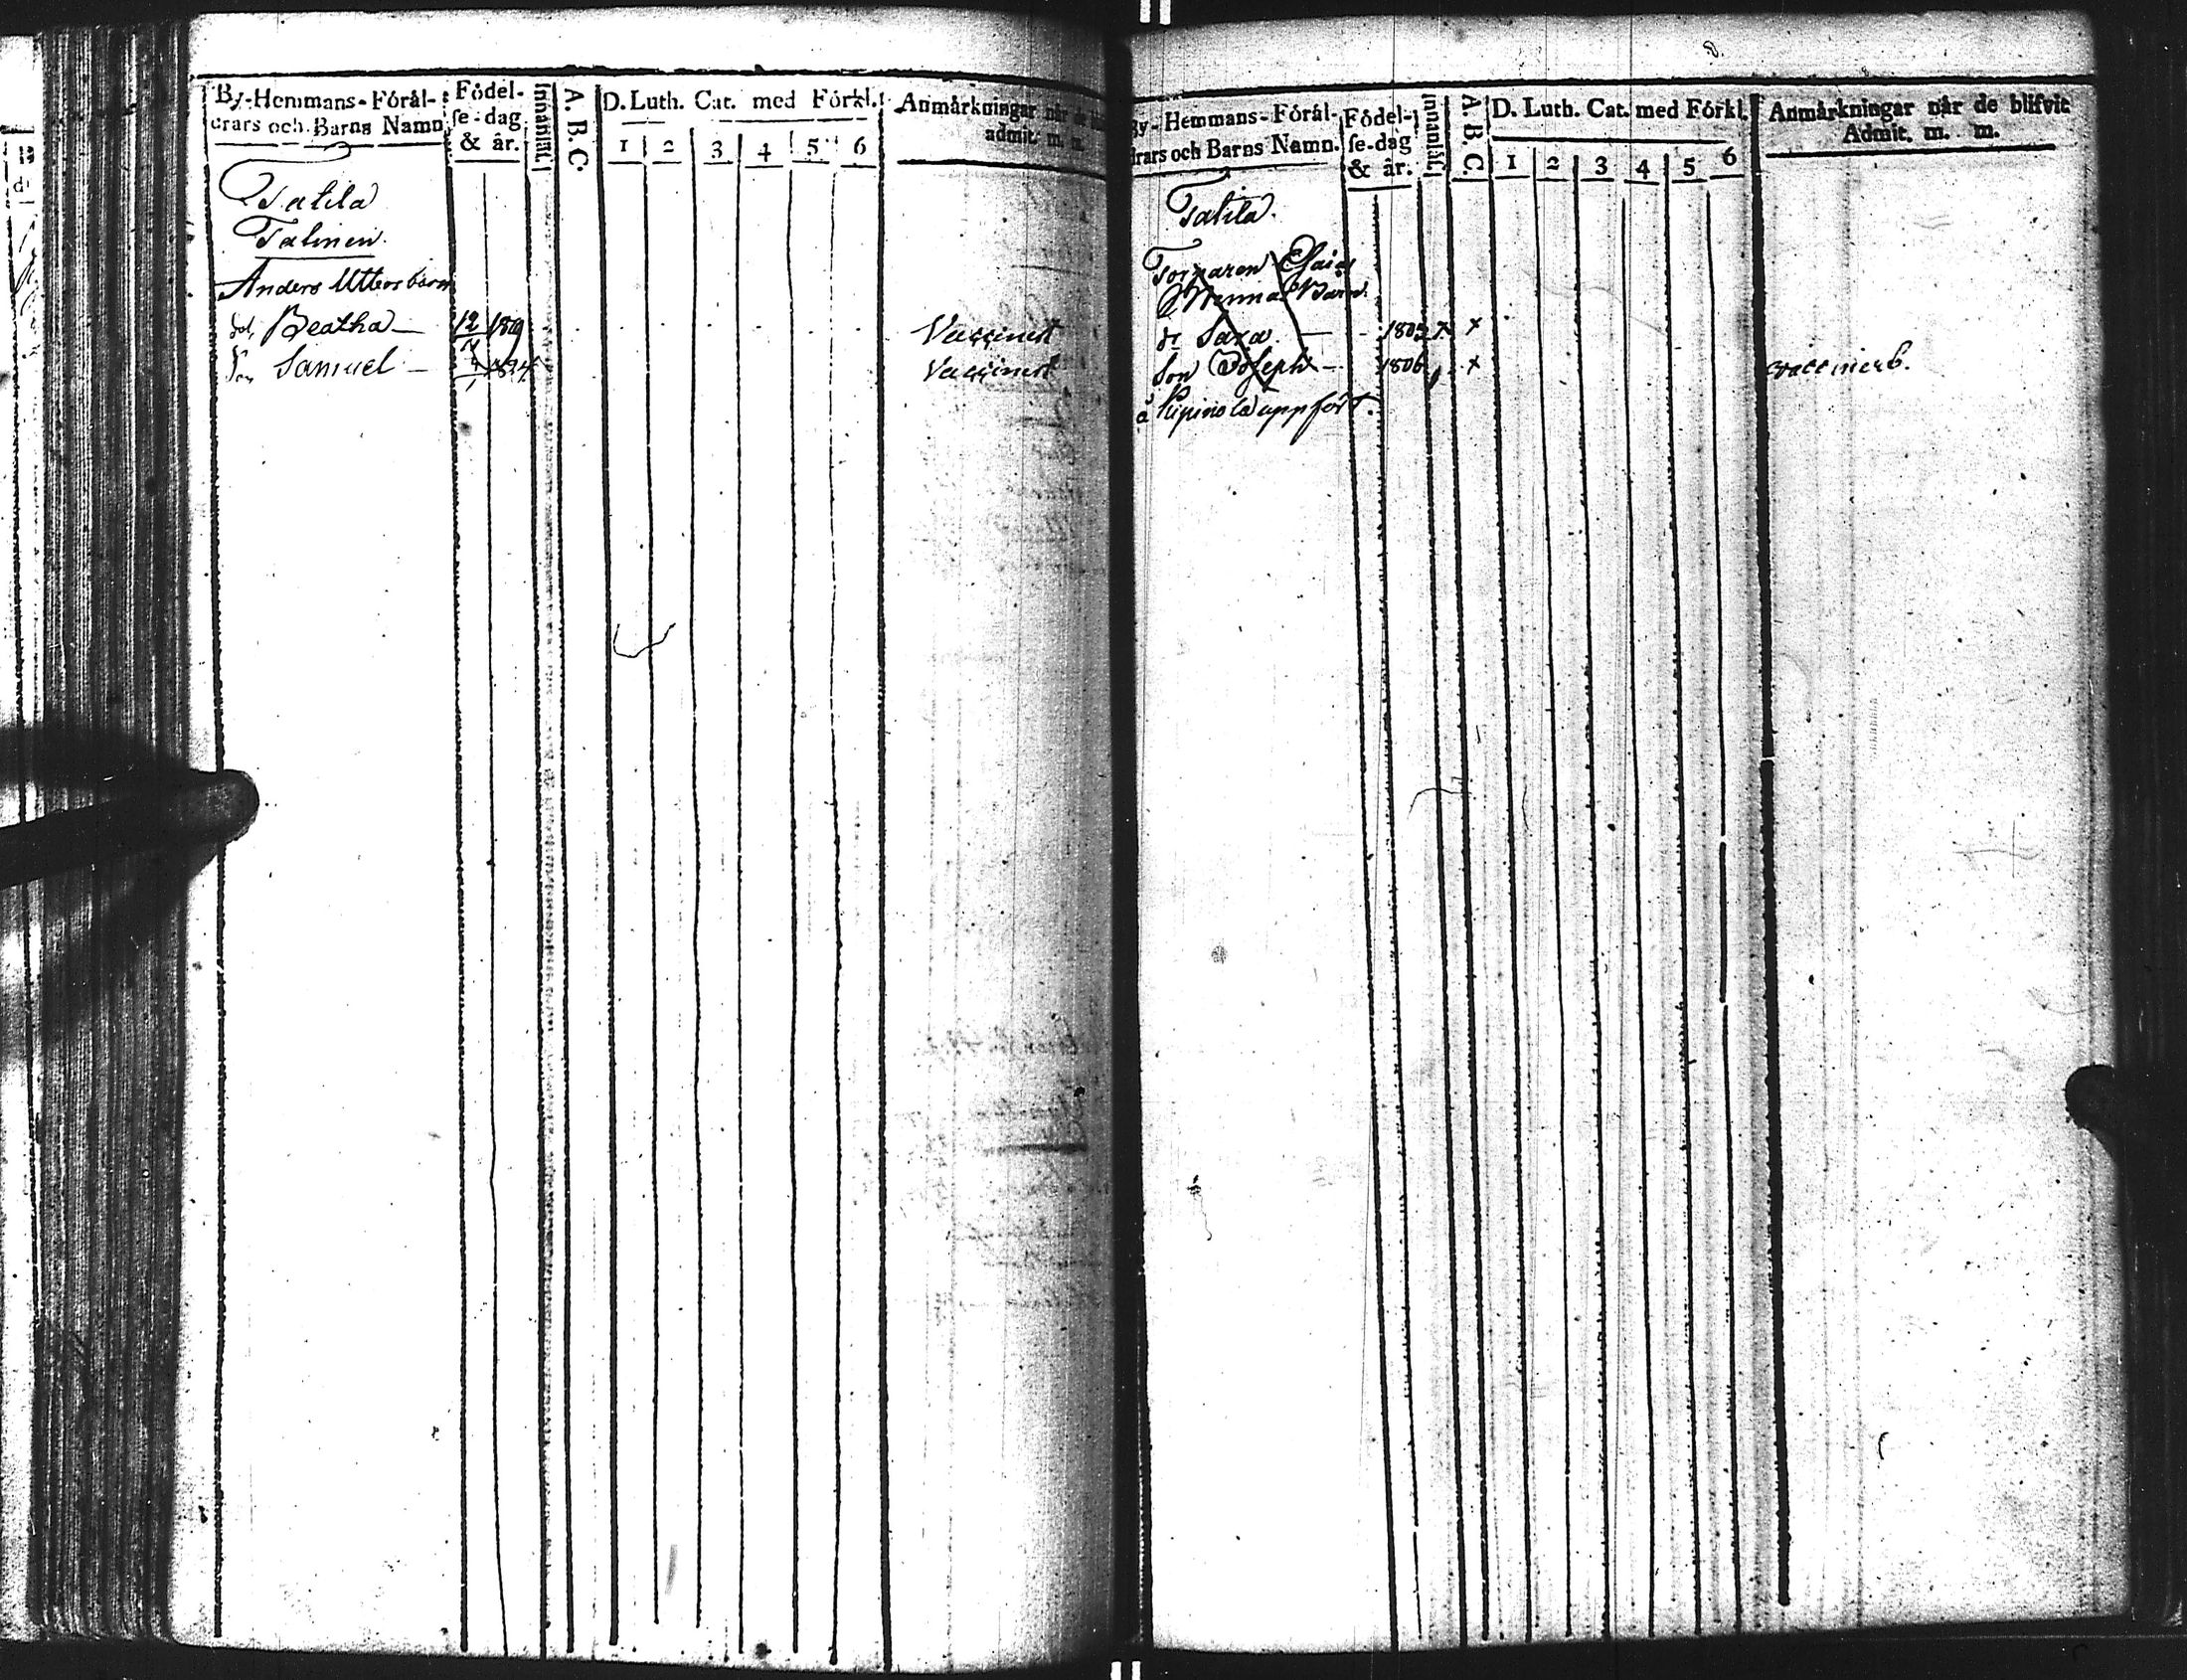 By-Hemmans-Förål-
drars och Barns Namn
Födel-
se-dag
& år.
Innanläs.
A. B. C.
D. Luth. Cat. med Förkl.
1 2 3 4 5 6
Anmärkningar når de
admit. m. m.
Tatila
Anders Matters barn
Beatha — 12 1819 Vaccinerat
Son Samuel — Vaccinerat
By-Hemmans-Förål-
drars och Barns Namn.
Födel-
se-dag
& år.
Innanläs.
A. B. C.
D. Luth. Cat. med Förkl.
1 2 3 4 5 6
Anmärkningar når de blifvit
Admit. m. m.
Tatila.
Torparen Esaias
Barn.
dr Sara. — 1803 x x
Son Joseph — 1806 x vaccinerad.
å uppfört.